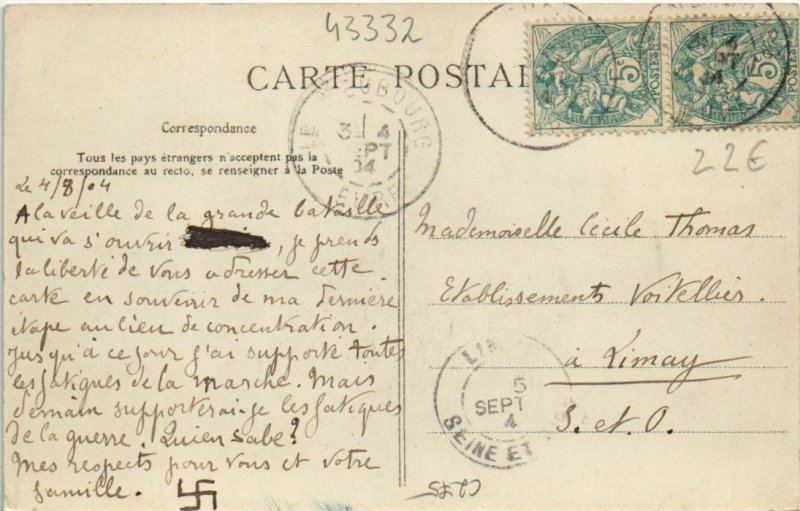 43332
CARTE POSTAL
Correspondance
Tous les pays étrangers n'acceptent pas la
correspondance au recto, se renseigner à la Poste
LE NEUBOURG
3E 4
SEPT
04
EURE
5c
POSTES
5c
POSTES
22€
Le 4/8/04
A la veille de la grande bataille
qui va s'ouvrir, je prends
la liberté de vous adresser cette
carte en souvenir de ma dernière
étape au lieu de concentration.
Jusqu'à ce jour j'ai supporté toutes
les fatigues de la marche. Mais
demain supporterai-je les fatigues
de la guerre. Quien sabe?
Mes respects pour vous et votre
famille. 卐
Mademoiselle Cécile Thomas
Etablissements Voitellier.
à Limay
S. et O.
LIM
5
SEPT
4
SEINE ET